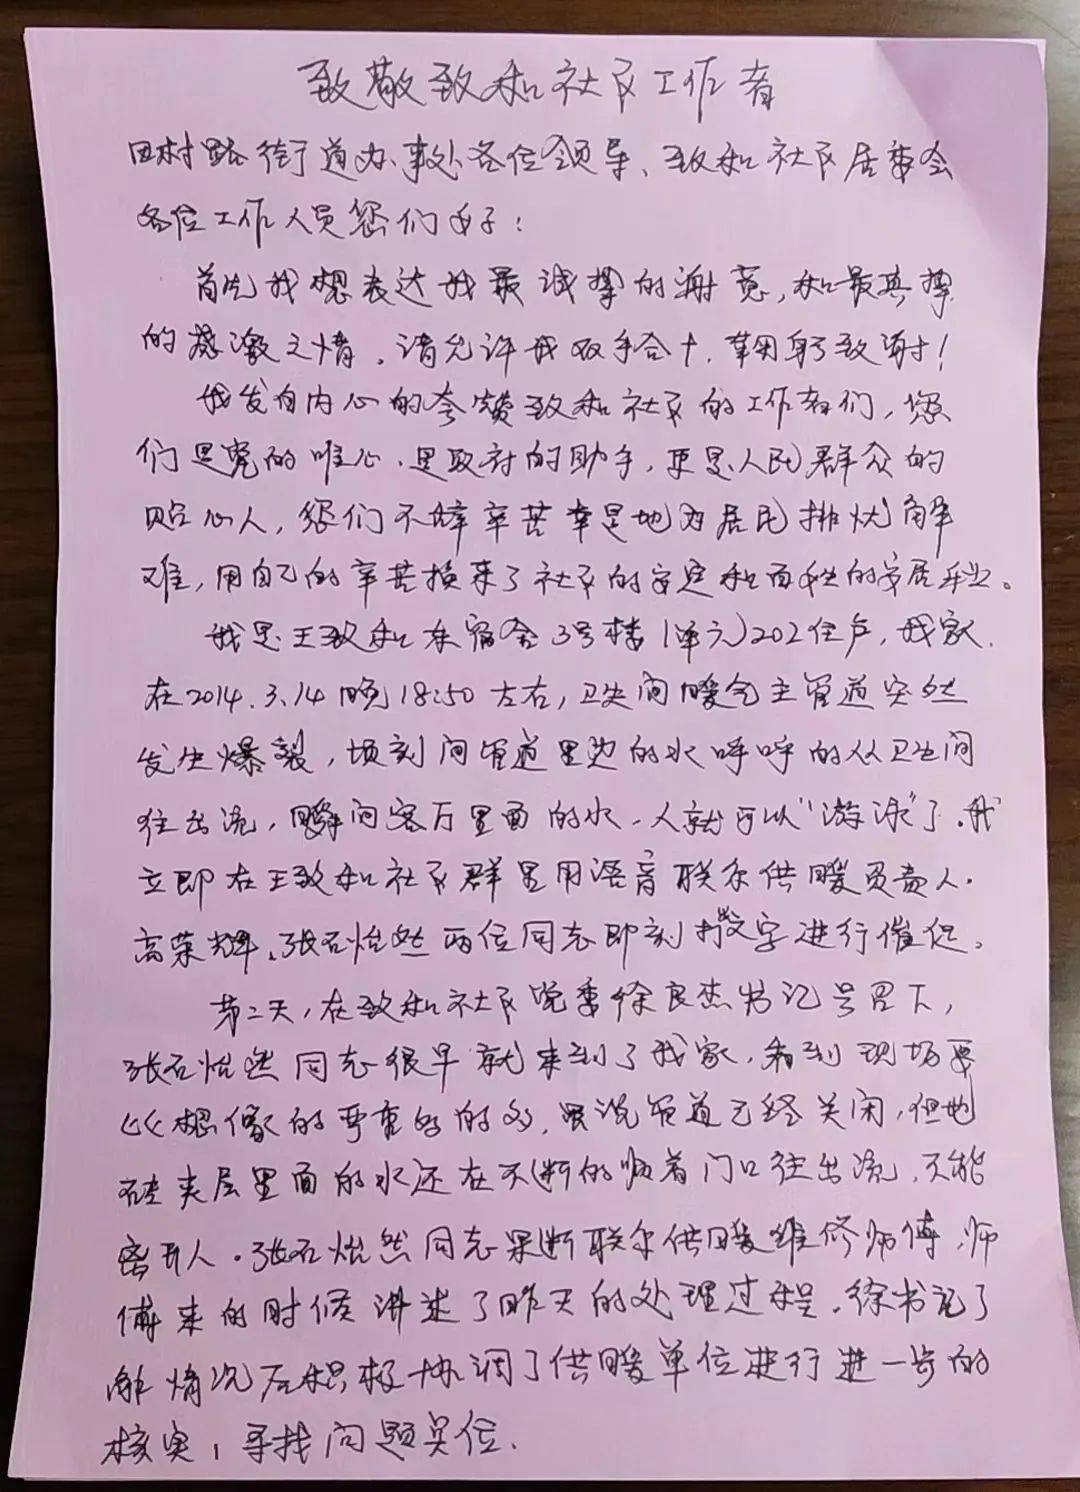 致敬致和社区工作者
田村路街道办事处各位领导、致和社区居委会
各位工作人员您们好：
首先我想表达我最诚挚的谢意，和最真挚
的感激之情，请允许我双手合十，鞠躬致谢！
我发自内心的夸赞致和社区的工作者们，您
们是党的唯心、是政府的助手，更是人民群众的
贴心人，您们不辞辛苦幸是地为居民排忧解
难，用自己的辛苦换来了社区的安定和百姓的安居乐业。
我是王致和东宿舍3号楼1单元202住户，我家
在2014.3.14晚18:50左右，卫生间暖气主管道突然
发生爆裂，顷刻间管道里边的水呼呼的从卫生间
往出流，瞬间客厅里面的水，人就可以“游泳”了。我
立即在王致和社区群里用语音联系供暖负责人。
高荣辉、张石怡然两位同志即刻打文字进行催促。
第二天，在致和社区党委徐良杰书记号召下，
张石怡然同志很早就来到了我家，看到现场要
比想像的严重的多，虽说管道已经关闭，但地
砖夹层里面的水还在不断的顺着门口往出流，不能
离开人。张石怡然同志果断联系供暖维修师傅，师
傅来的时候讲述了昨天的处理过程，徐书记了
解情况后积极协调了供暖单位进行进一步的
核实，寻找问题位。